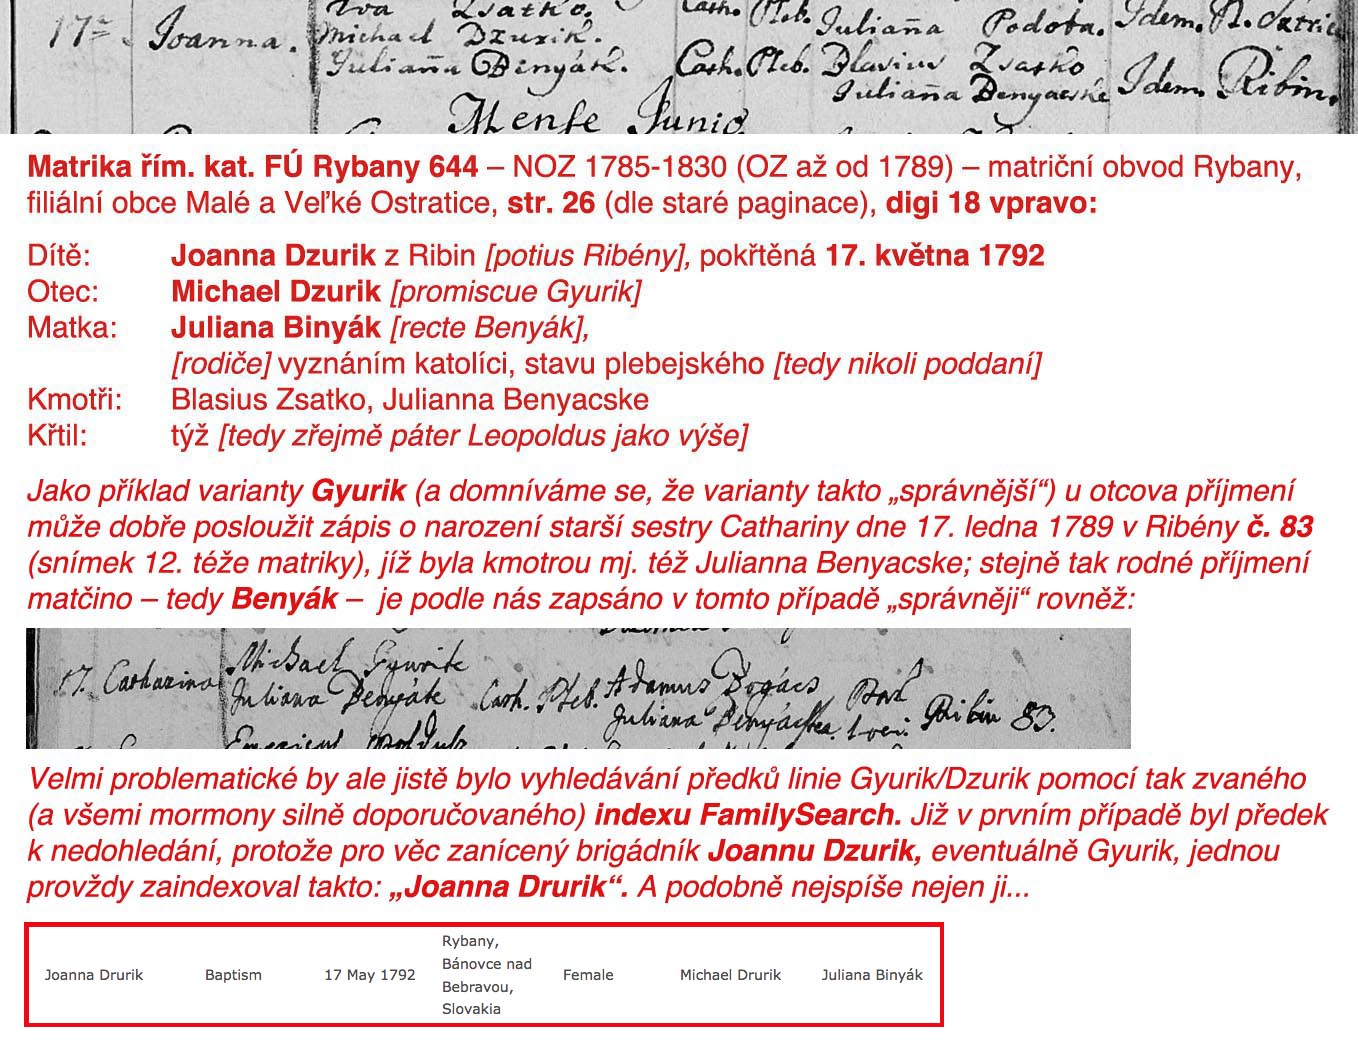 Eva Zsatko. Cath. Pleb.
17ma Joanna. Michael Dzurik. Julianna Podoba. Idem. Ostratic
Julianna Binyák. Cath. Pleb. Blasius Zsatko
Julianna Benyacske Idem. Ribin.
Mense Junio
Matrika řím. kat. FÚ Rybany 644 – NOZ 1785-1830 (OZ až od 1789) – matriční obvod Rybany,
filiální obce Malé a Veľké Ostratice, str. 26 (dle staré paginace), digi 18 vpravo:
Dítě: Joanna Dzurik z Ribin [potius Ribény], pokřtěná 17. května 1792
Otec: Michael Dzurik [promiscue Gyurik]
Matka: Juliana Binyák [recte Benyák],
[rodiče] vyznáním katolíci, stavu plebejského [tedy nikoli poddaní]
Kmotři: Blasius Zsatko, Julianna Benyacske
Křtil: týž [tedy zřejmě páter Leopoldus jako výše]
Jako příklad varianty Gyurik (a domníváme se, že varianty takto „správnější“) u otcova příjmení
může dobře posloužit zápis o narození starší sestry Cathariny dne 17. ledna 1789 v Ribény č. 83
(snímek 12. téže matriky), jíž byla kmotrou mj. též Julianna Benyacske; stejně tak rodné příjmení
matčino – tedy Benyák – je podle nás zapsáno v tomto případě „správněji“ rovněž:
Michael Gyurik
17. Catharina Juliana Benyák Cath. Pleb. Adamus Bogács
Juliana Benyácska. loci. Ribin 83.
Velmi problematické by ale jistě bylo vyhledávání předků linie Gyurik/Dzurik pomocí tak zvaného
(a všemi mormony silně doporučovaného) indexu FamilySearch. Již v prvním případě byl předek
k nedohledání, protože pro věc zanícený brigádník Joannu Dzurik, eventuálně Gyurik, jednou
provždy zaindexoval takto: „Joanna Drurik“. A podobně nejspíše nejen ji...
Rybany,
Bánovce nad
Joanna Drurik Baptism 17 May 1792 Female Michael Drurik Juliana Binyák
Bebravou,
Slovakia